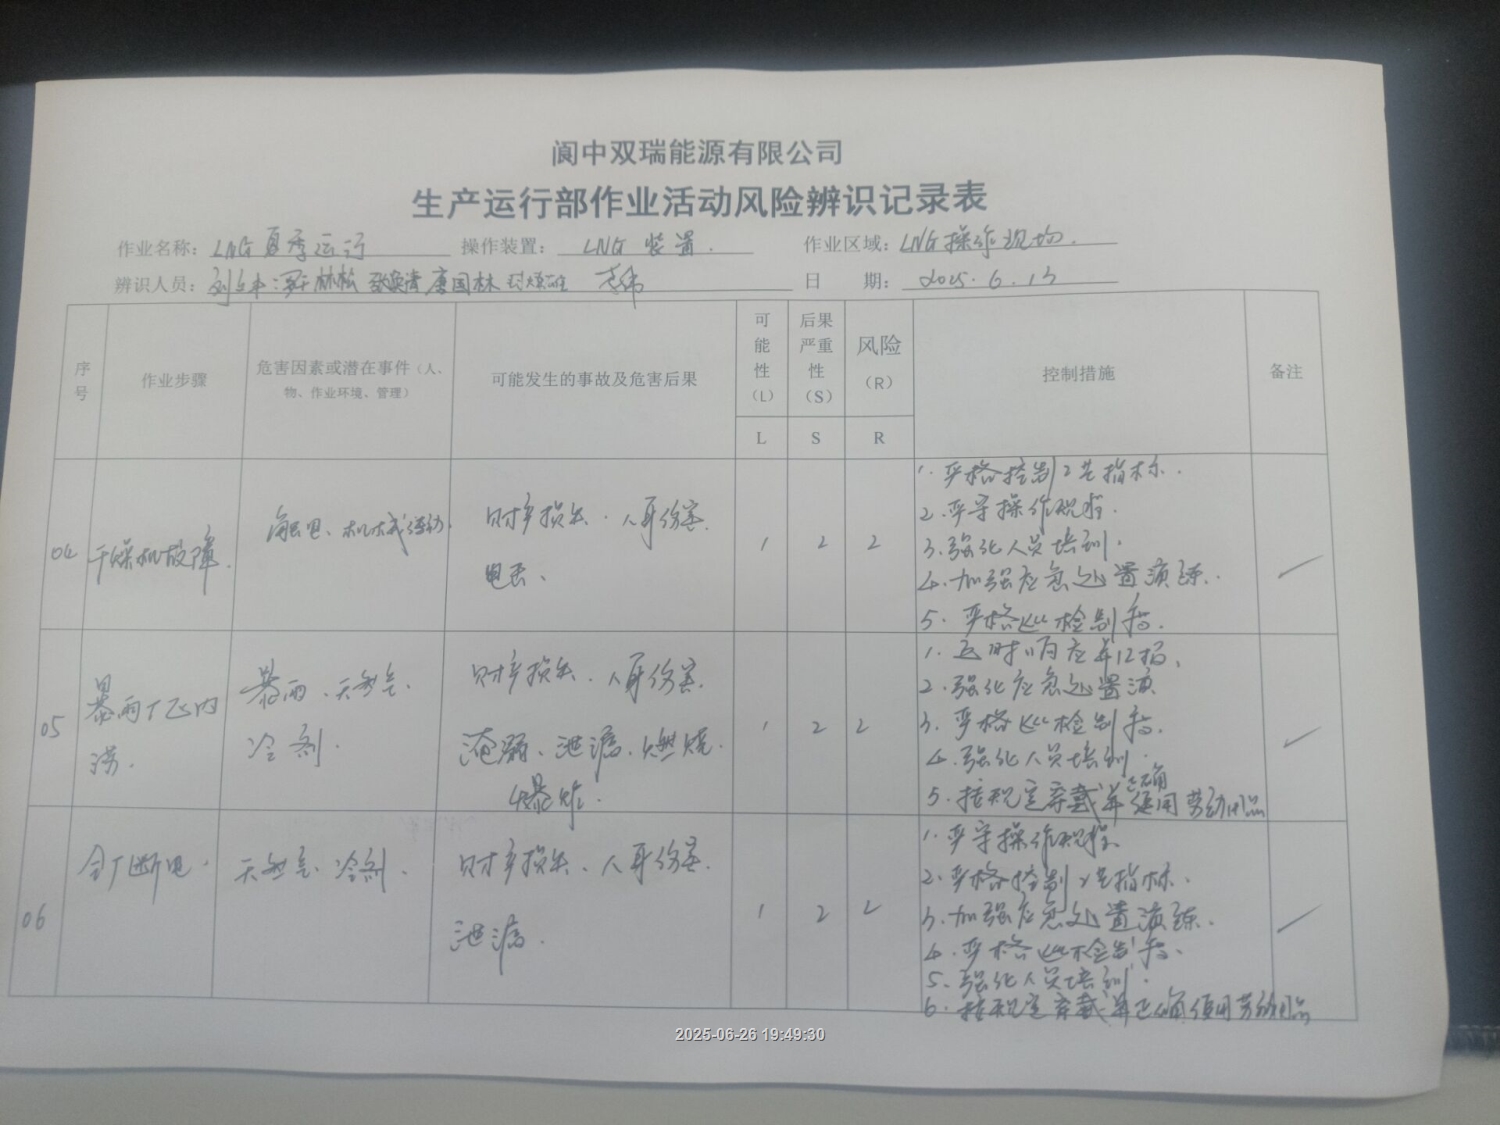 阆中双瑞能源有限公司
生产运行部作业活动风险辨识记录表
作业名称: LNG夏季运行 操作装置: LNG装置. 作业区域: LNG操作现场.
辨识人员: 日 期: 2025.6.13
序号 作业步骤 危害因素或潜在事件（人、物、作业环境、管理） 可能发生的事故及危害后果 可能性（L） 后果严重性（S） 风险（R） 控制措施 备注
L S R
04 干燥机故障. 触电、机械传动. 财产损失. 人身伤害. 电击、 1 2 2
1. 严格控制工艺指标.
2. 严守操作规程.
3. 强化人员培训.
4. 加强应急处置演练.
5. 严格巡检制度.
05 暴雨厂区内涝. 暴雨、天然气. 冷剂. 财产损失、人身伤害. 淹溺、泄漏、燃烧. 爆炸. 1 2 2
1. 及时
2. 强化应急处置演
3. 严格巡检制度.
4. 强化人员培训.
5. 按规定穿戴并正确使用劳动用品
06 全厂断电. 天然气、冷剂. 财产损失、人身伤害. 泄漏. 1 2 2
1. 严守操作规程.
2. 严格控制工艺指标.
3. 加强应急处置演练.
4. 严格巡检制度.
5. 强化人员培训.
6. 按规定穿戴并正确使用劳动用品
2025-06-26 19:49:30